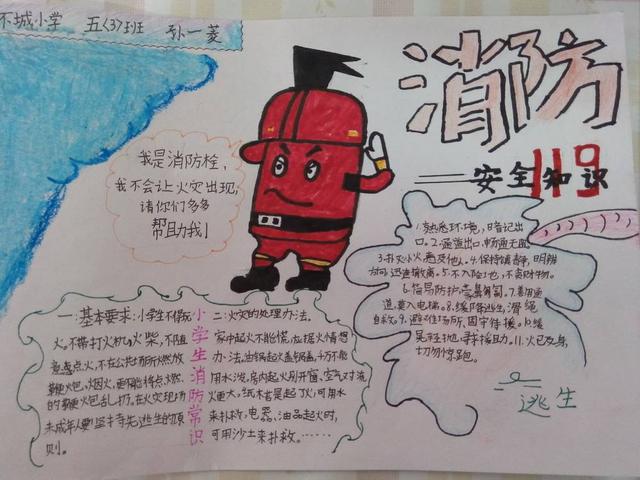 不城小学 五〈3〉班 孙一菱
消防
119
——安全知识
我是消防栓，
我不会让火灾出现，
请你们多多
帮助我！
1.熟悉环境，暗记出
口。2.通道出口，畅通无阻。
3.扑灭小火，惠及他人。4.保持镇静，明辨
方向，迅速撤离。5.不入险地，不贪财物。
6.简易防护，蒙鼻匍匐。7.善用通
道，莫入电梯。8.缓降逃生，滑绳
自救。9.避难场所，固守待援。10.缓
晃轻抛，寻求援助。11.火已及身，
切勿惊跑。
逃生
小学生消防常识
一、基本要求：小学生不得玩
火。不带打火机，火柴，不随
意点火，不在公共场所燃放
鞭火包、烟火，更不能将点燃
的鞭火包乱扔。在火灾现场
未成年人要坚持先逃生的原
则。
二：火灾的处理办法。
家中起火不能慌，应据火情想
办法。油锅起火盖锅盖，千万不能
用水泼，房内起火别开窗，空气对流
火更大。纸木若是起了火，可用水
来扑救，电器、油品起火时，
可用沙土来扑救。……